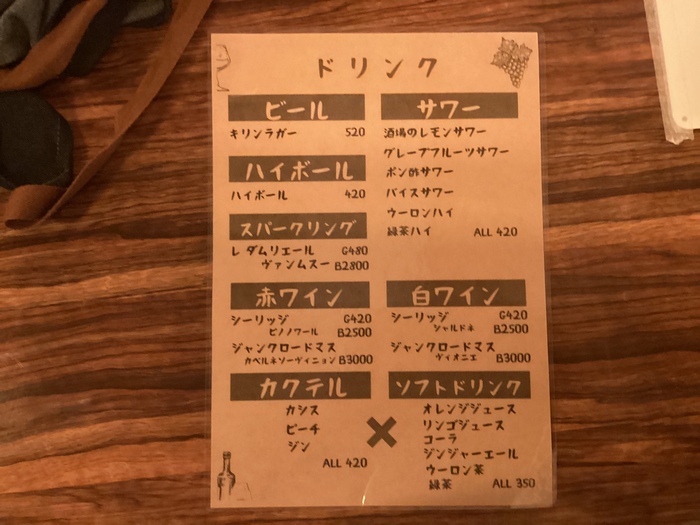 ドリンク
ビール
キリンラガー 520
ハイボール
ハイボール 420
スパークリング
レ ダムリエール G480
ヴァンムスー B2800
サワー
酒場のレモンサワー
グレープフルーツサワー
ポン酢サワー
バイスサワー
ウーロンハイ
緑茶ハイ ALL 420
赤ワイン
シーリッジ G420
ピノノワール B2500
ジャンクロードマス
カベルネソーヴィニョン B3000
白ワイン
シーリッジ G420
シャルドネ B2500
ジャンクロードマス
ヴィオニエ B3000
カクテル
カシス
ピーチ
ジン
ALL 420
×
ソフトドリンク
オレンジジュース
リンゴジュース
コーラ
ジンジャーエール
ウーロン茶
緑茶 ALL 350